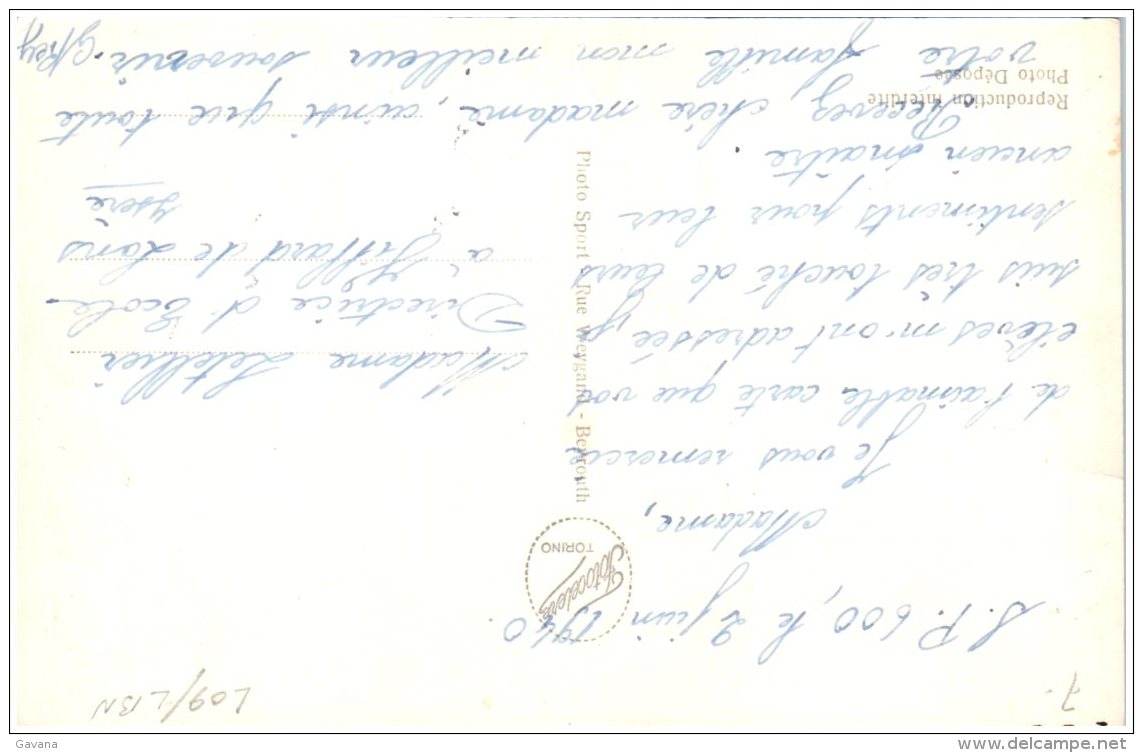 S. P. 600, le 2 juin 1940.
Madame,
Je vous remercie
de l'aimable carte que vos
élèves m'ont adressée, je
suis très touché de leurs
sentiments pour leur
ancien maître.
Recevez, chère madame, ainsi que toute
votre famille mon meilleur souvenir.
Madame Letellier
Directrice d'Ecole
à Villard de Lans
Isère
Photo Sport - Rue Weygand - Beyrouth
Fotocelere
TORINO
Reproduction Interdite
Photo Déposée
L09/LBN
7-
Gavana
www.delcampe.net